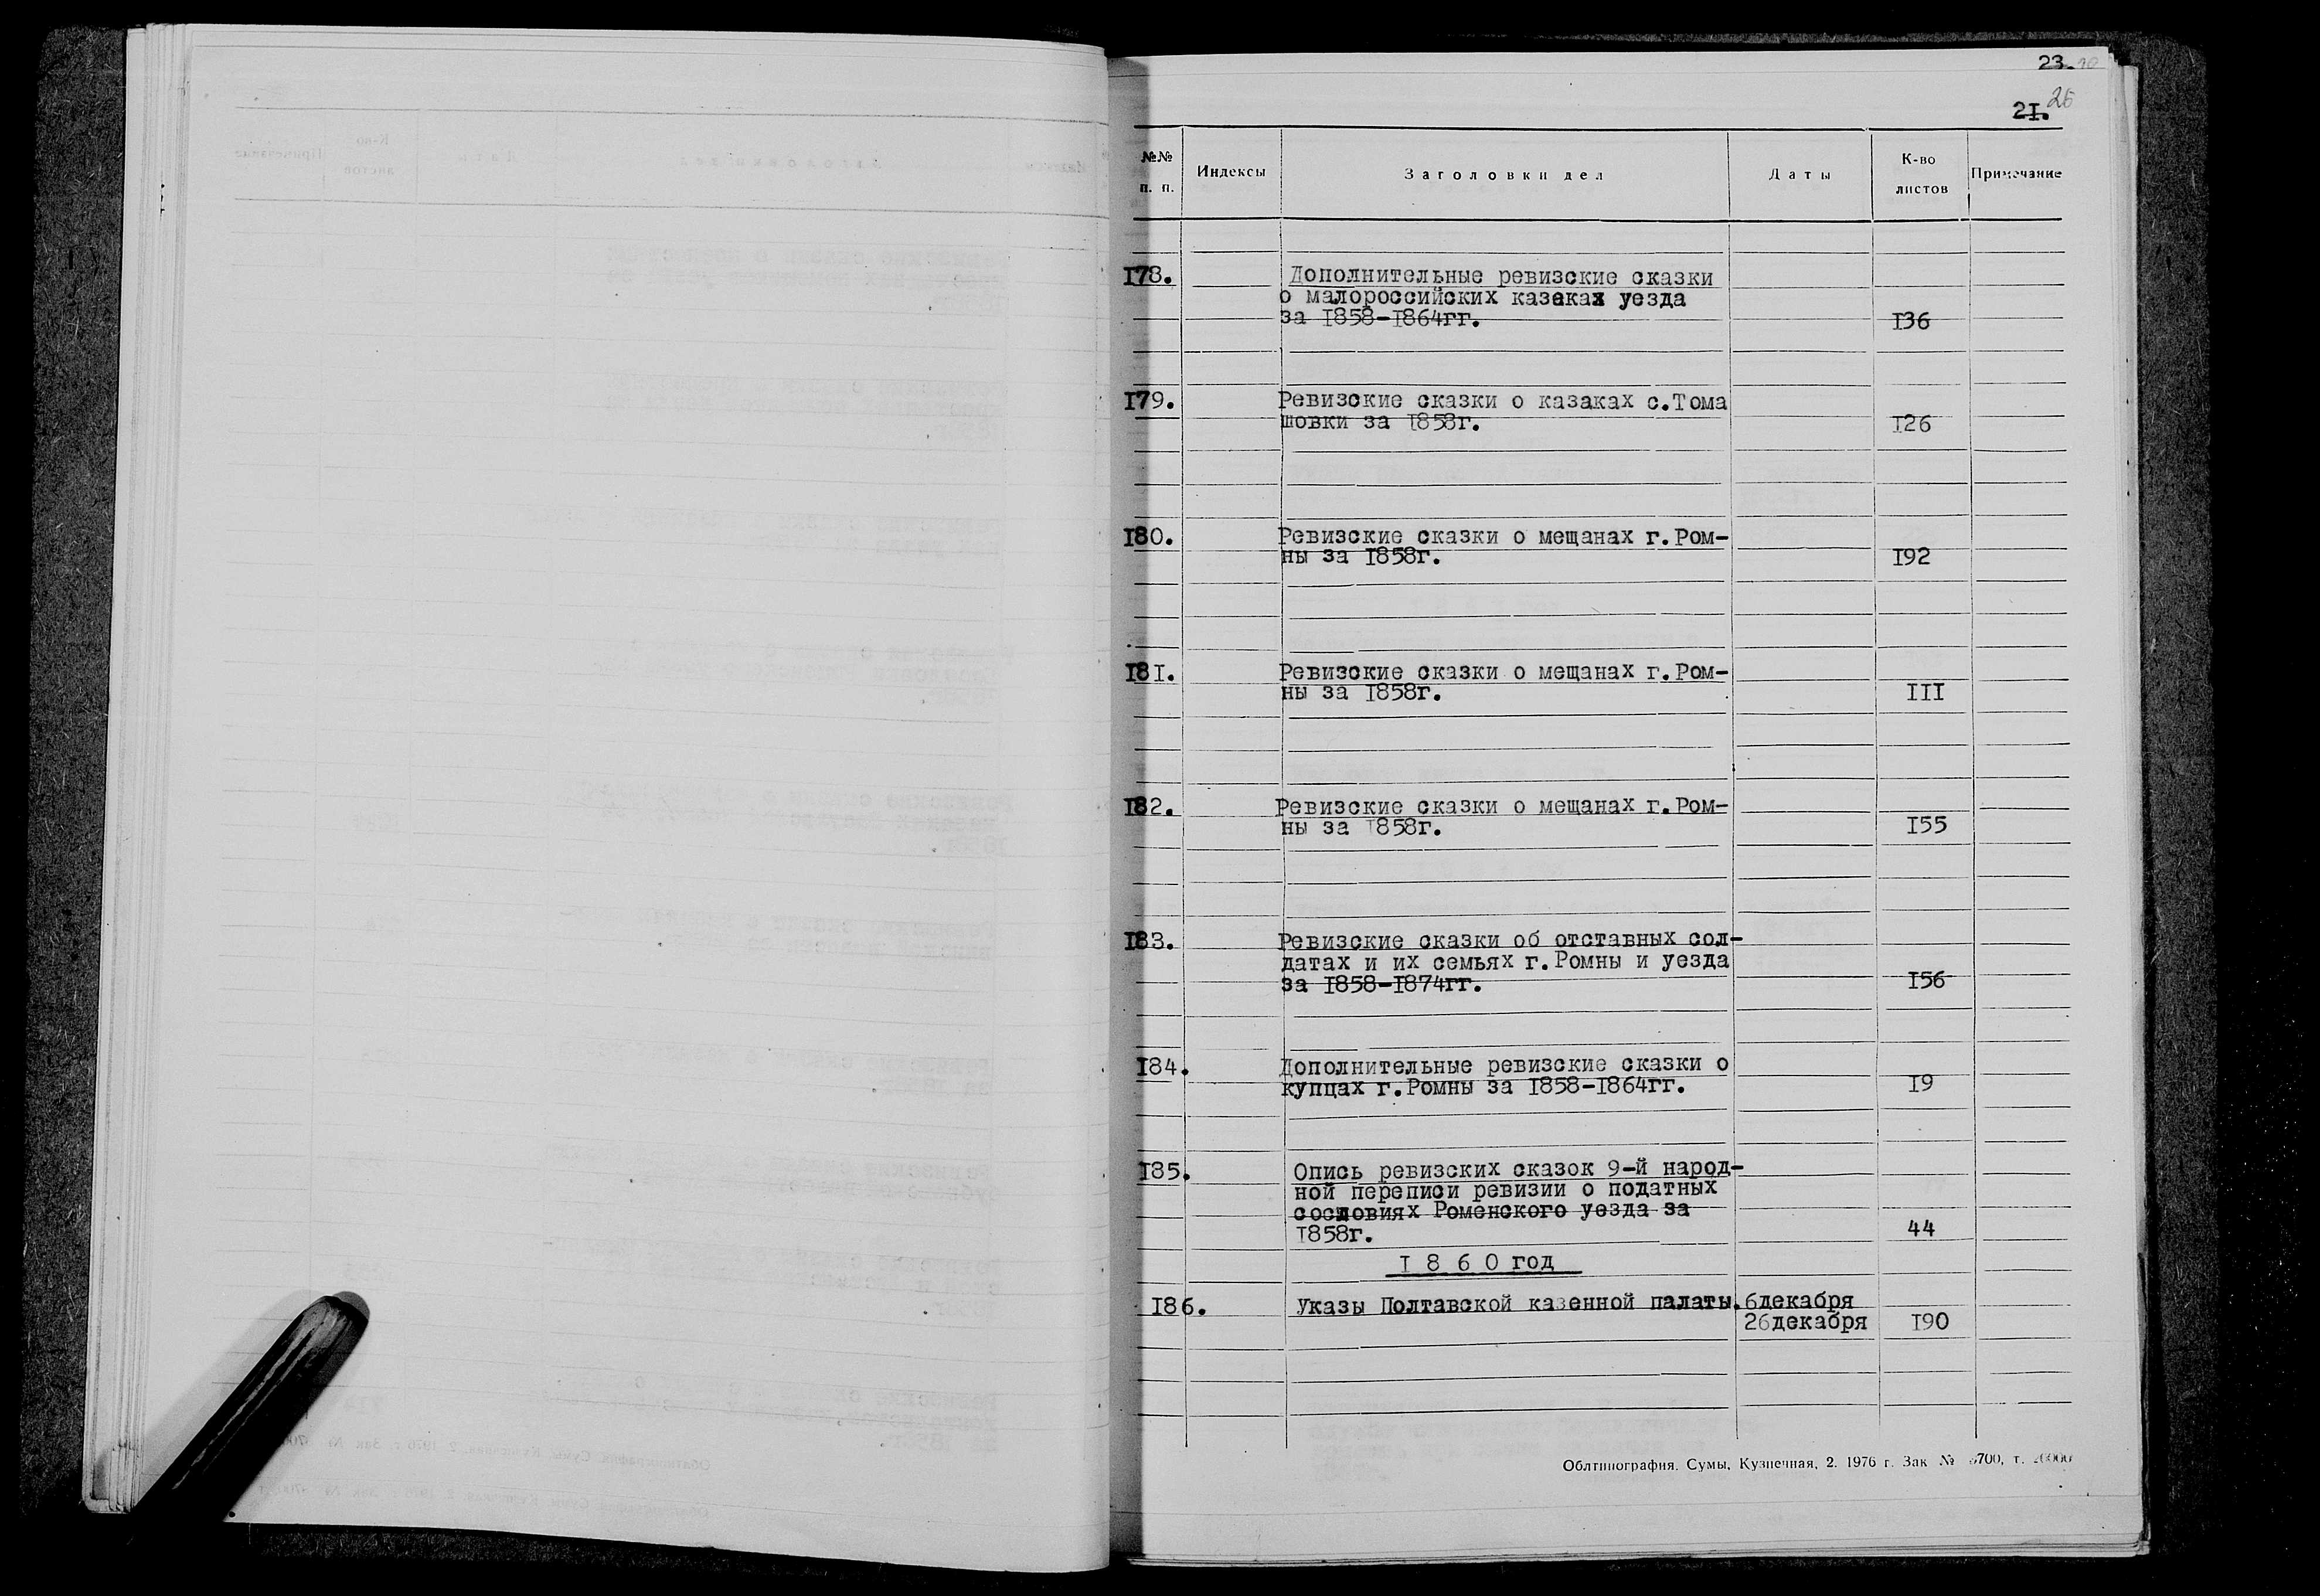 23.
26
21.
№№ п. п. Индексы Заголовки дел Даты К-во листов Примечание
178. Дополнительные ревизские сказки
о малороссийских казаках уезда
за 1858-1864гг. 136
179. Ревизские сказки о казаках с.Тома
шовки за 1858г. 126
180. Ревизские сказки о мещанах г.Ром-
ны за 1858г. 192
181. Ревизские сказки о мещанах г.Ром-
ны за 1858г. 111
182. Ревизские сказки о мещанах г.Ром-
ны за 1858г. 155
183. Ревизские сказки об отставных сол-
датах и их семьях г.Ромны и уезда
за 1858-1874гг. 156
184. Дополнительные ревизские сказки о
купцах г.Ромны за 1858-1864гг. 19
185. Опись ревизских сказок 9-й народ-
ной переписи ревизии о податных
сословиях Роменского уезда за
1858г. 44
1860 год
186. Указы Полтавской казенной палаты. 6декабря
26декабря 190
Облтипография. Сумы, Кузнечная, 2. 1976 г. Зак №